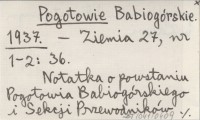 Pogotowie Babiogórskie.
1937. – Ziemia 27, nr
1-2: 36.
Notatka o powstaniu
Pogotowia Babiogórskiego
i Sekcji Przewodników %.